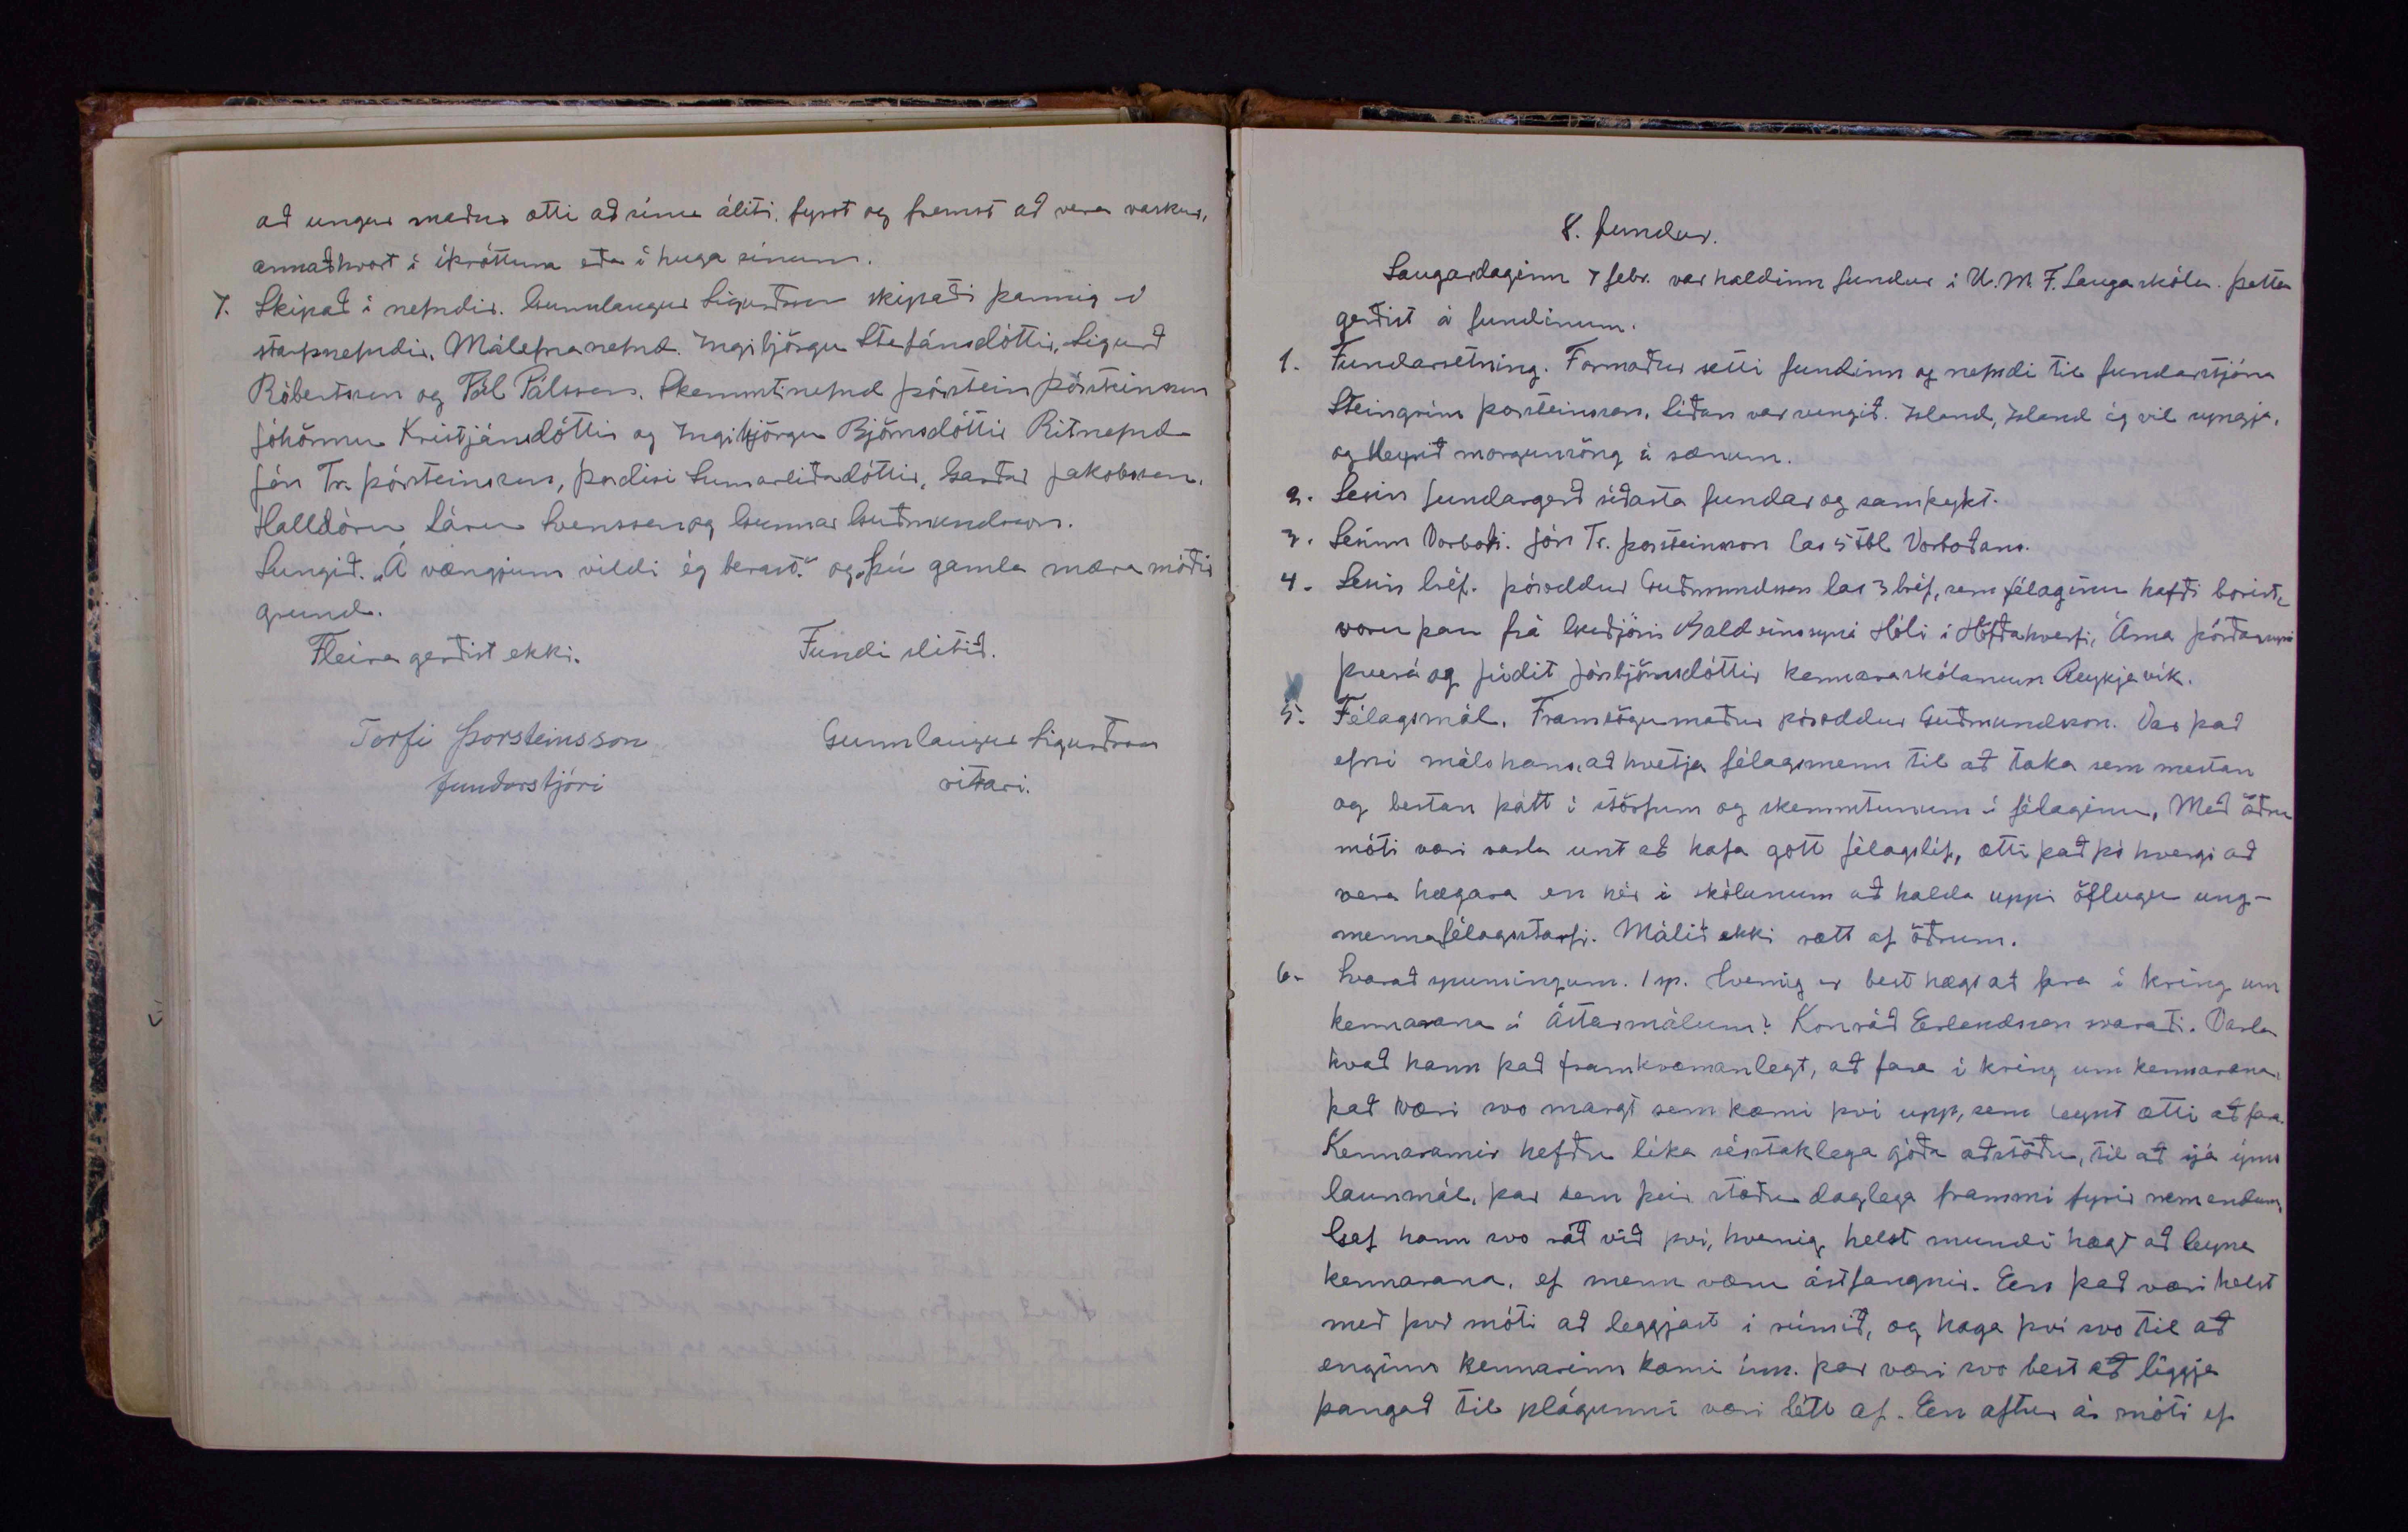 að ungur maður ætti að sínu áliti, fyrst og fremst að vera vaskur,
annaðhvort í íþróttum eða í huga sínum.
7. Skipað í nefndir. Gunnlaugur Sigurðsson skipaði þannig í
starfsnefndir. Málefnanefnd. Ingibjörgu Stefánsdóttir, Sigurð
Róbertsson og Pál Pálsson. Skemmtinefnd Þórstein Þórsteinsson
Jóhönnu Kristjánsdóttir og Ingibjörgu Björnsdóttir Ritnefnd
Jón Tr. Þórsteinsson, Þordísi Sumarliðadóttir, Garðar Jakobsson,
Halldóru Láru Svensson og Gunnar Guðmundsson.
Sungið. „Á vængjum vildi ég berast." og „Þú gamla mæra móðir
grund.
Fleira gerðist ekki. Fundi slitið.
Torfi Þorsteinsson Gunnlaugur Sigurðsson
fundarstjóri ritari.
8. fundur.
Laugardaginn 7 febr. var haldinn fundur í U.M.F. Laugaskóla. Þetta
gerðist á fundinum.
1. Fundarsetning. Formaður setti fundinn og nefndi til fundarstjóra
Steingrím Þorsteinsson. Síðan var sungið. Ísland, Ísland ég vil syngja,
og Heyrið morgunsöng á sænum.
2. Lesin fundargerð síðasta fundar og samþykt.
3. Lesinn Vorboði. Jón Tr. Þorsteinsson las 5 tbl. Vorboðans.
4. Lesin bréf. Þóroddur Guðmundsson las 3 bréf, sem félaginu hafði borist,
voru þau frá Guðjóni Baldvinssyni Hóli í Höfðahverfi, Árna Þórðarsyni
Þverá og Júdit Jónbjörnsdóttir kennaraskólanum Reykjavík.
5. Félagsmál. Framsögumaður Þóroddur Guðmundsson. Var það
efni máls hans, að hvetja félagsmenn til að taka sem mestan
og bestan þátt í störfum og skemmtunum í félaginu, Með öðru
móti væri varla unt að hafa gott félagslíf, ætti það þó hvergi að
vera hægara en hér í skólanum að halda uppi öflugu ung-
mennafélagsstarfi. Málið ekki rætt af öðrum.
6. Svarað spurningum. 1 sp. Hvernig er best hægt að fara í kring um
kennarana í Ástarmálum? Konráð Erlendsson svaraði. Varla
kvað hann það framkvæmanlegt, að fara í kring um kennarana,
það væri svo margt sem kæmi því upp, sem leynt ætti að fara.
Kennararnir hefðu líka sérstaklega góða aðstöðu, til að sjá ýms
launmál, þar sem þeir stæðu daglega frammi fyrir nemendum,
Gaf hann svo ráð við því, hvernig helst mundi hægt að leyna
kennarana, ef menn væru ástfangnir. En það væri helst
með því móti að leggjast í rúmið, og haga því svo til að
enginn kennarinn kæmi inn. Þar væri svo best að liggja
þangað til plágunni væri létt af. En aftur á móti ef